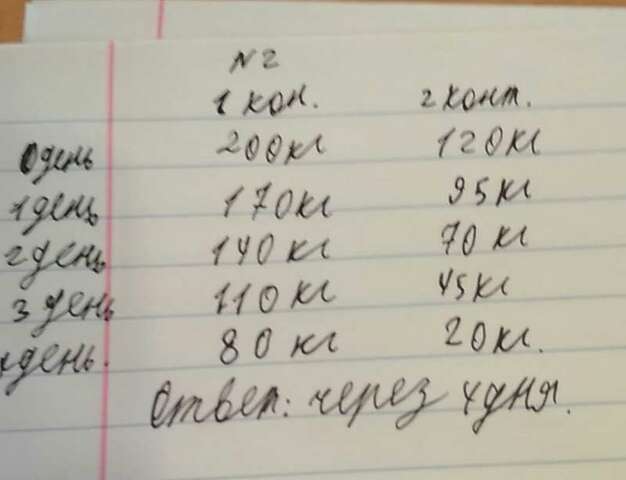 №2
1 кон. 2 конт.
0 день 200 кг 120 кг
1 день 170 кг 95 кг
2 день 140 кг 70 кг
3 день 110 кг 45 кг
день. 80 кг 20 кг.
Ответ: через 4 дня.